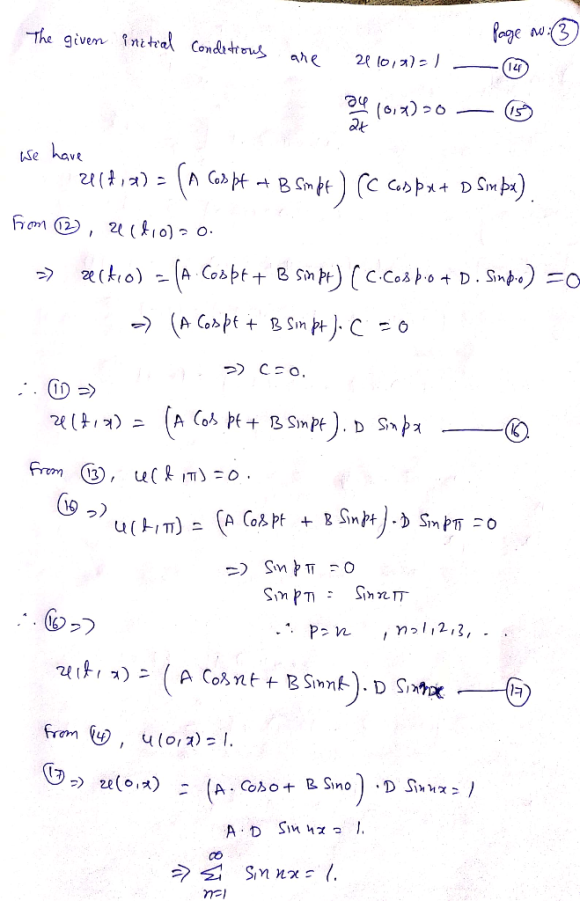 Page No: 3
The given initial Conditions are u(0,x) = 1 — (14)
∂u/∂t (0,x) = 0 — (15)
We have
u(t,x) = (A Cos pt + B Sin pt) (C Cos px + D Sin px).
From (12), u(t,0) = 0.
⇒ u(t,0) = (A Cos pt + B Sin pt) (C. Cos p.0 + D. Sin p.0) = 0
⇒ (A Cos pt + B Sin pt). C = 0
⇒ C = 0.
∴ (11) ⇒
u(t,x) = (A Cos pt + B Sin pt). D Sin px — (16).
From (13), u(t,π) = 0.
(16) ⇒ u(t,π) = (A Cos pt + B Sin pt). D Sin pπ = 0
⇒ Sin pπ = 0
Sin pπ = Sin nπ
∴ (16) ⇒ ∴ p = n , n = 1,2,3, . .
u(t,x) = (A Cos nt + B Sin nt). D Sin nx — (17)
From (14), u(0,x) = 1.
(17) ⇒ u(0,x) = (A. Cos 0 + B Sin 0) . D Sin nx = 1
A. D Sin nx = 1.
⇒ ∞ Σ n=1 Sin nx = 1.